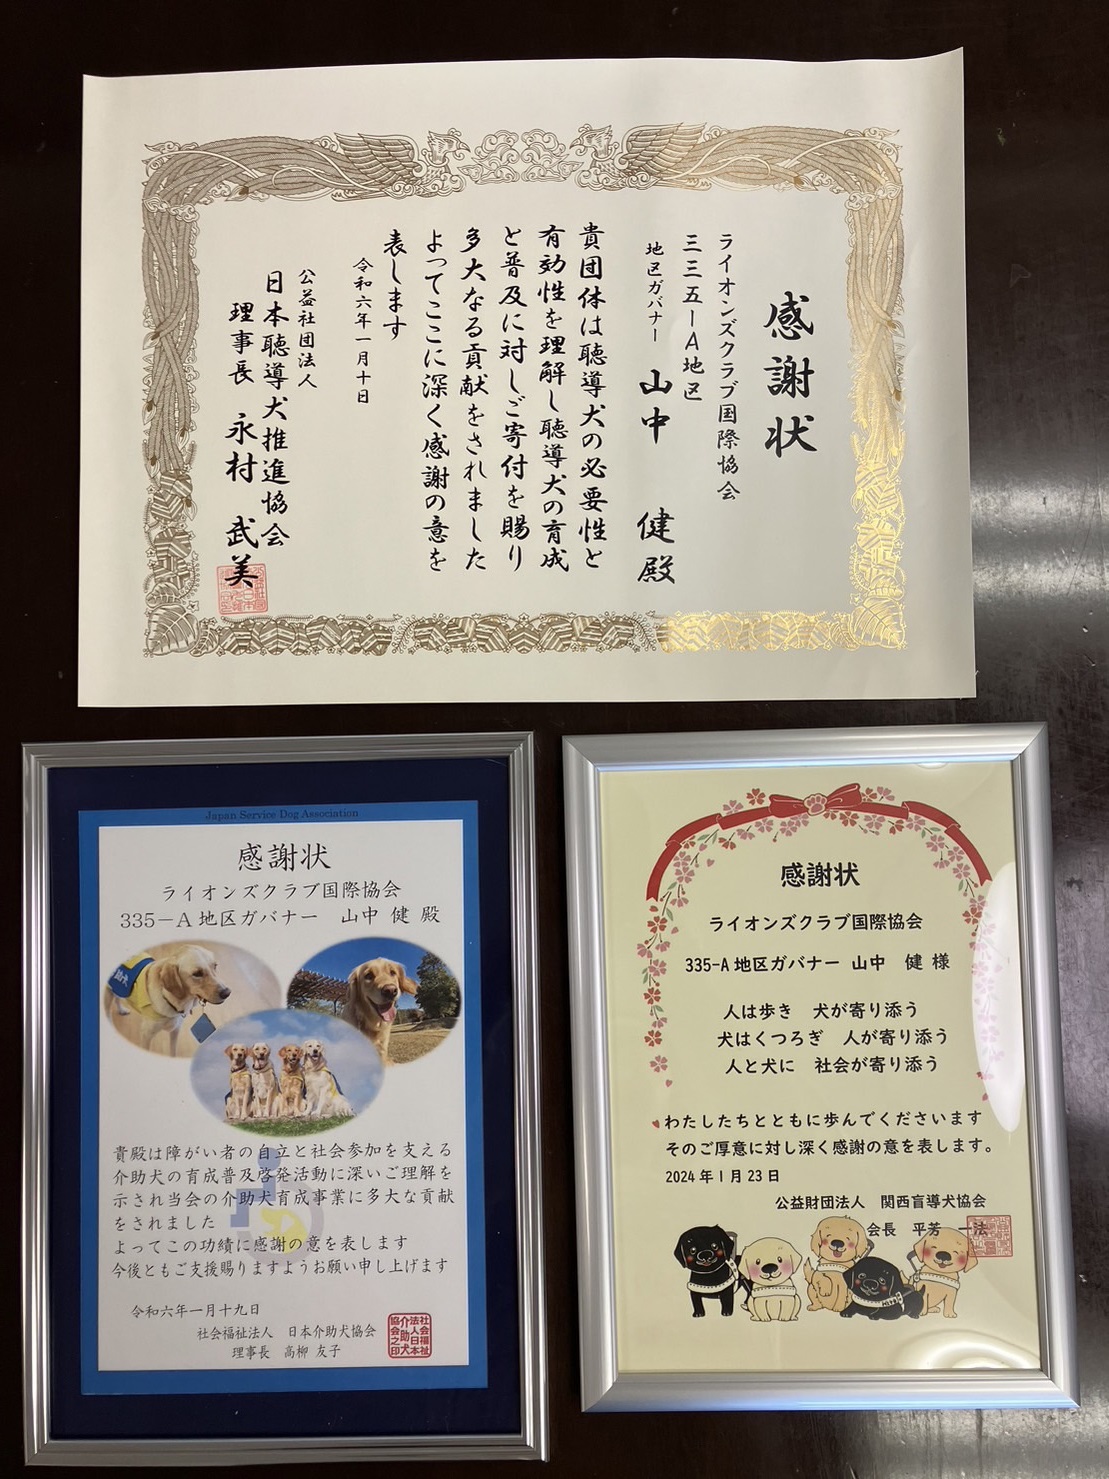 感謝状
ライオンズクラブ国際協会
三三五ーA地区
地区ガバナー 山中 健殿
貴団体は聴導犬の必要性と
有効性を理解し聴導犬の育成
と普及に対しご寄付を賜り
多大なる貢献をされました
よってここに深く感謝の意を
表します
令和六年一月十日
公益社団法人
日本聴導犬推進協会
理事長 永村 武美
Japan Service Dog Association
感謝状
ライオンズクラブ国際協会
335－A地区ガバナー 山中 健 殿
貴殿は障がい者の自立と社会参加を支える
介助犬の育成普及啓発活動に深いご理解を
示され当会の介助犬育成事業に多大な貢献
をされました
よってこの功績に感謝の意を表します
今後ともご支援賜りますようお願い申し上げます
令和六年一月十九日
社会福祉法人 日本介助犬協会
理事長 高柳 友子
社会福祉
法人日本
介助犬
協会之印
感謝状
ライオンズクラブ国際協会
335-A地区ガバナー 山中 健 様
人は歩き 犬が寄り添う
犬はくつろぎ 人が寄り添う
人と犬に 社会が寄り添う
わたしたちとともに歩んでくださいます
そのご厚意に対し深く感謝の意を表します。
2024年1月23日
公益財団法人 関西盲導犬協会
会長 平芳 一法